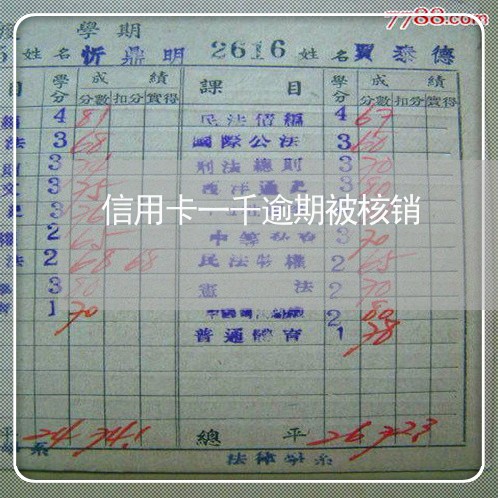 7788.com
學期
姓名 忻鼎明 2616 姓名 賈泰德
目 學分 成績 課目 學分 成績
分數 扣分 實得 分數 扣分 實得
4 81 民法債編 4 67
法 3 68 國際公法 3 60
3 刑法總則 3 70
3 75 西洋通史 3 80
信用卡一千逾期被核销
2 65 3 70
法 2 68 68 民法物權 2 65
3 80 憲法 2 70
2 80
1 70 普通體育 1 78
平 24 74.1 總平 26 72.3
系 法律學系